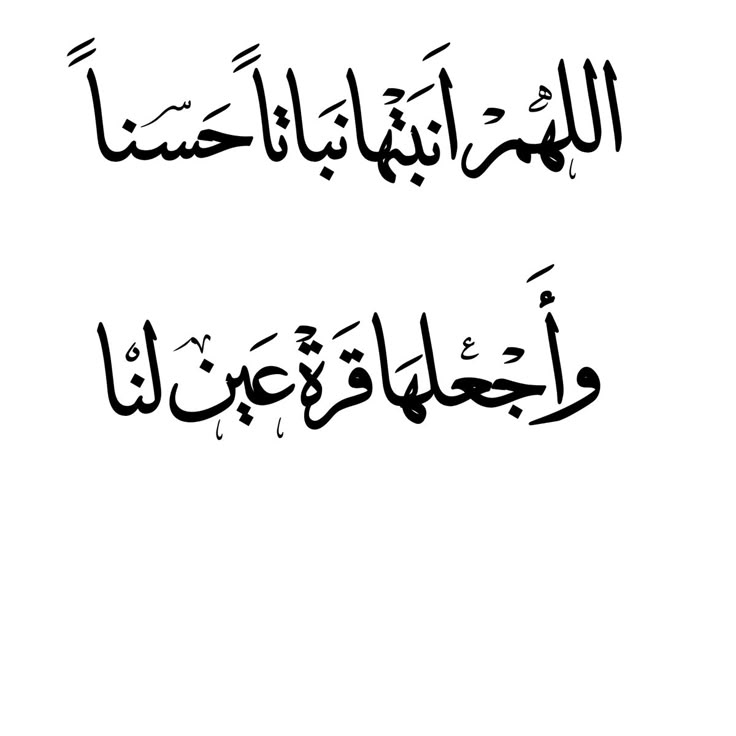 اللهم أَنبَتها نَباتاً حَسناً
وأَجعلهَا قَرة عَين لنا